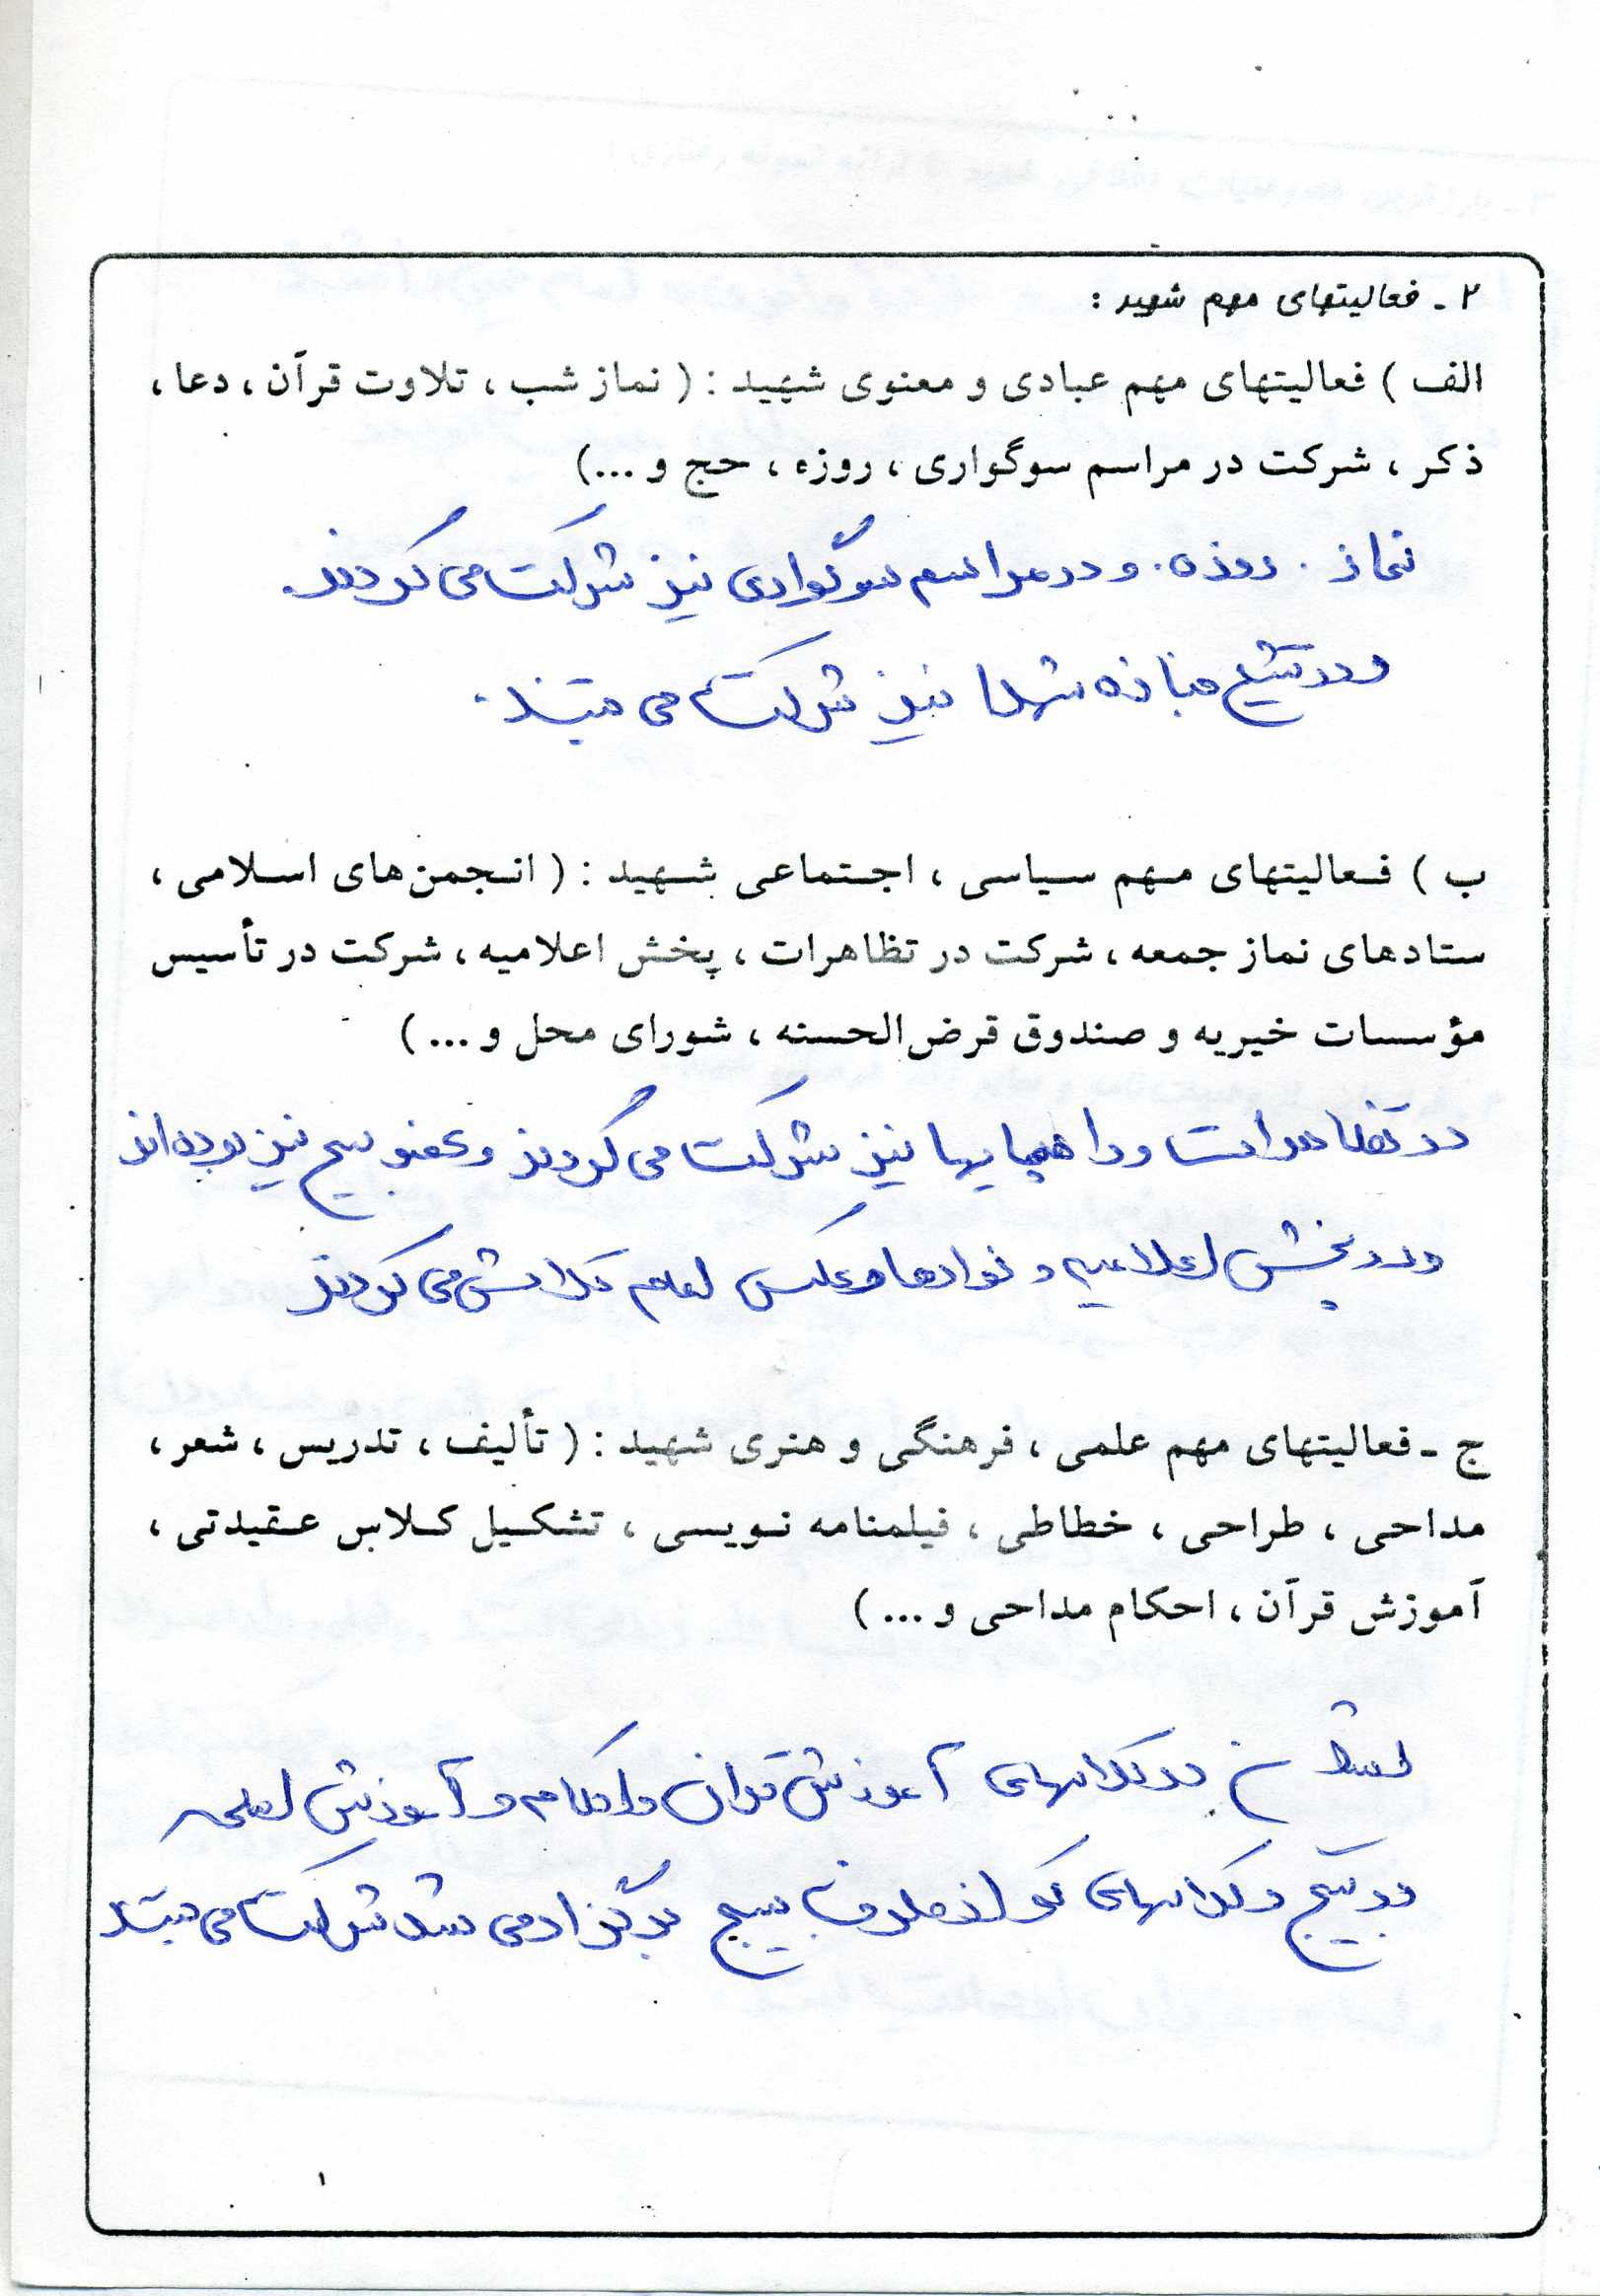 ۲ ـ فعالیتهای مهم شهید :
الف ) فعالیتهای مهم عبادی و معنوی شهید : ( نماز شب ، تلاوت قرآن ، دعا ،
ذکر ، شرکت در مراسم سوگواری ، روزه ، حج و ...)
نماز . روزه . و در مراسم سوگواری نیز شرکت می کردند .
و در تشیع جنازه شهدا نیز شرکت می جستند .
ب ) فعالیتهای مهم سیاسی ، اجتماعی شهید : ( انجمن‌های اسلامی ،
ستادهای نماز جمعه ، شرکت در تظاهرات ، پخش اعلامیه ، شرکت در تأسیس
مؤسسات خیریه و صندوق قرض‌الحسنه ، شورای محل و ... )
در تظاهرات و راهپمایها نیز شرکت می کردند و عضو بسیج نیز بوده‌اند
و در پخش اعلامیه و نوارها و عکس امام تلاش می کردند
ج ـ فعالیتهای مهم علمی ، فرهنگی و هنری شهید : ( تألیف ، تدریس ، شعر ،
مداحی ، طراحی ، خطاطی ، فیلمنامه نویسی ، تشکیل کلاس عقیدتی ،
آموزش قرآن ، احکام مداحی و ... )
در کلاسهای آموزش قران و احکام و آموزش اسلحه
در بسیج و کلاسهای که از طرف بسیج برگزار می شد شرکت می جستند
۱